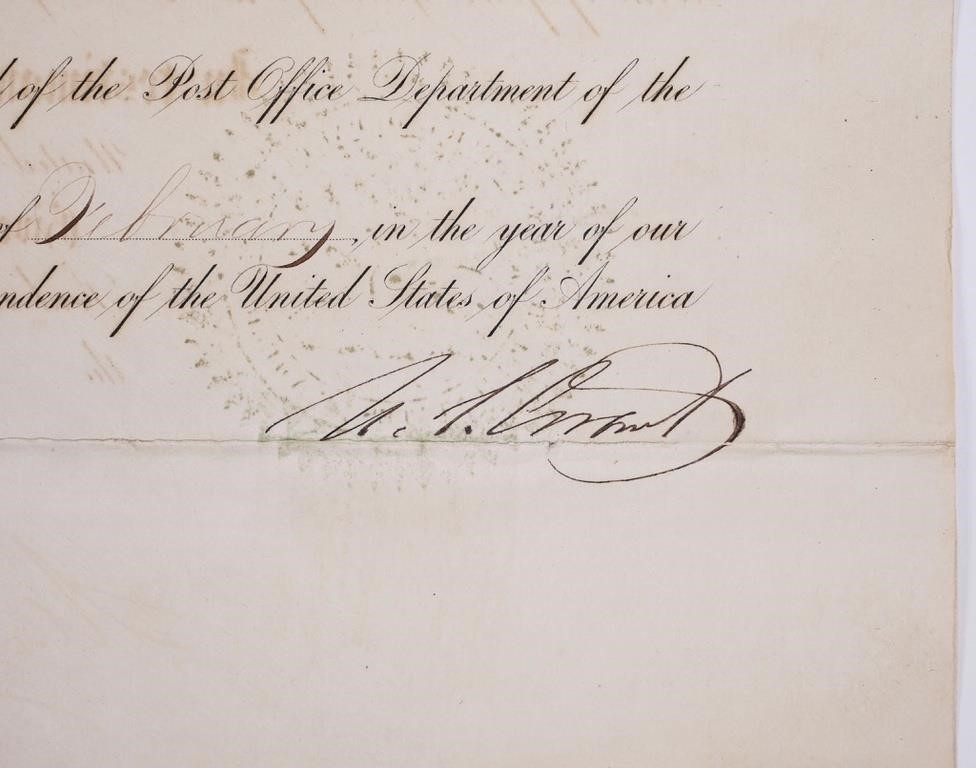 of the Post Office Department of the
of February, in the year of our
ndence of the United States of America
U. S. Grant